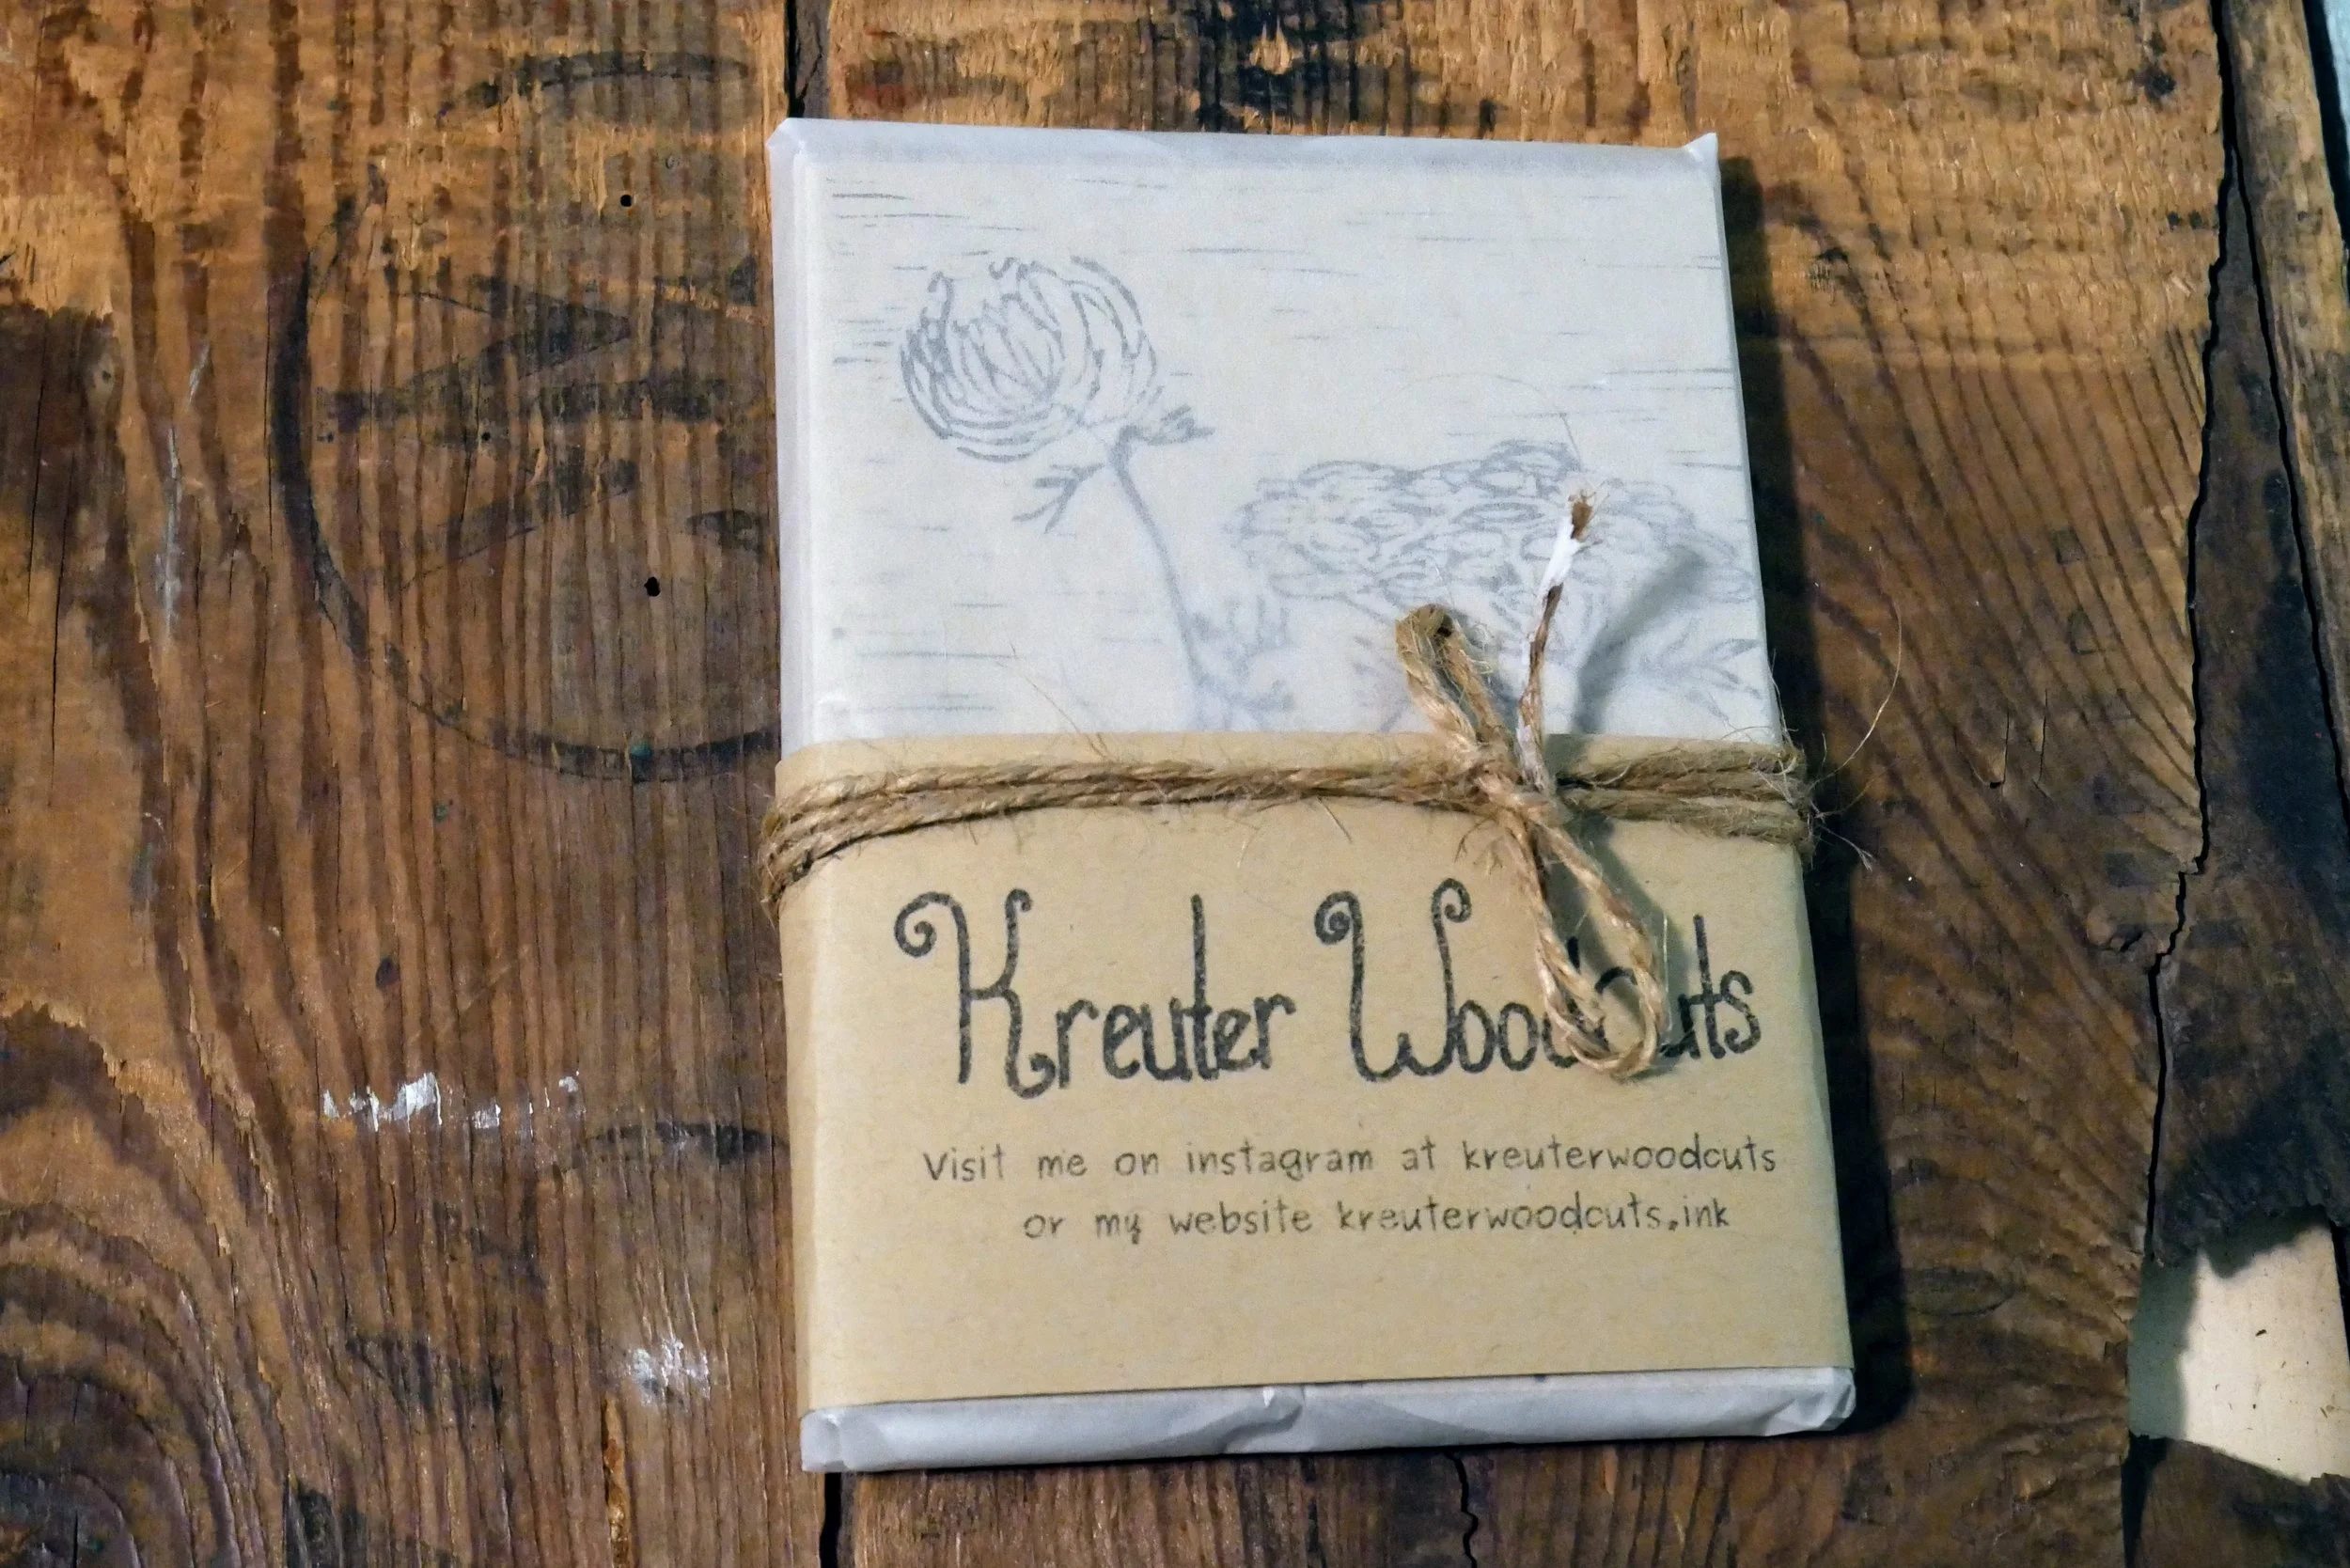 Kreuter Woodcuts
Visit me on instagram at kreuterwoodcuts
or my website kreuterwoodcuts.ink